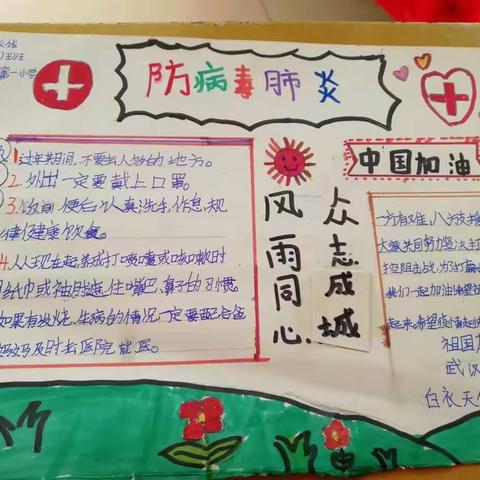 防病毒肺炎
第一小学
1.过年期间,不要去人多的地方。
2.外出一定要戴上口罩。
3.饭前便后认真洗手,作息规
律健康饮食。
4.从现在起养成打喷嚏或咳嗽时
用纸巾或袖肘遮住嘴巴、鼻子的习惯,
如果有发烧、生病的情况,一定要配合爸
妈妈及时去医院就医。
风雨同心
众志成城
中国加油
一方有难,八方支援
大家共同努力坚决打
控阻击战,为了打赢
我们一起加油
起来,希望疫情
祖国加
武汉
白衣天